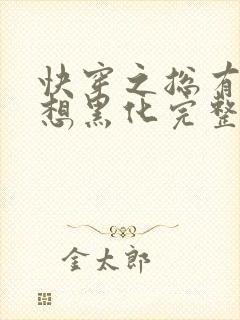 快穿之总有
想黑化完整
金太郎